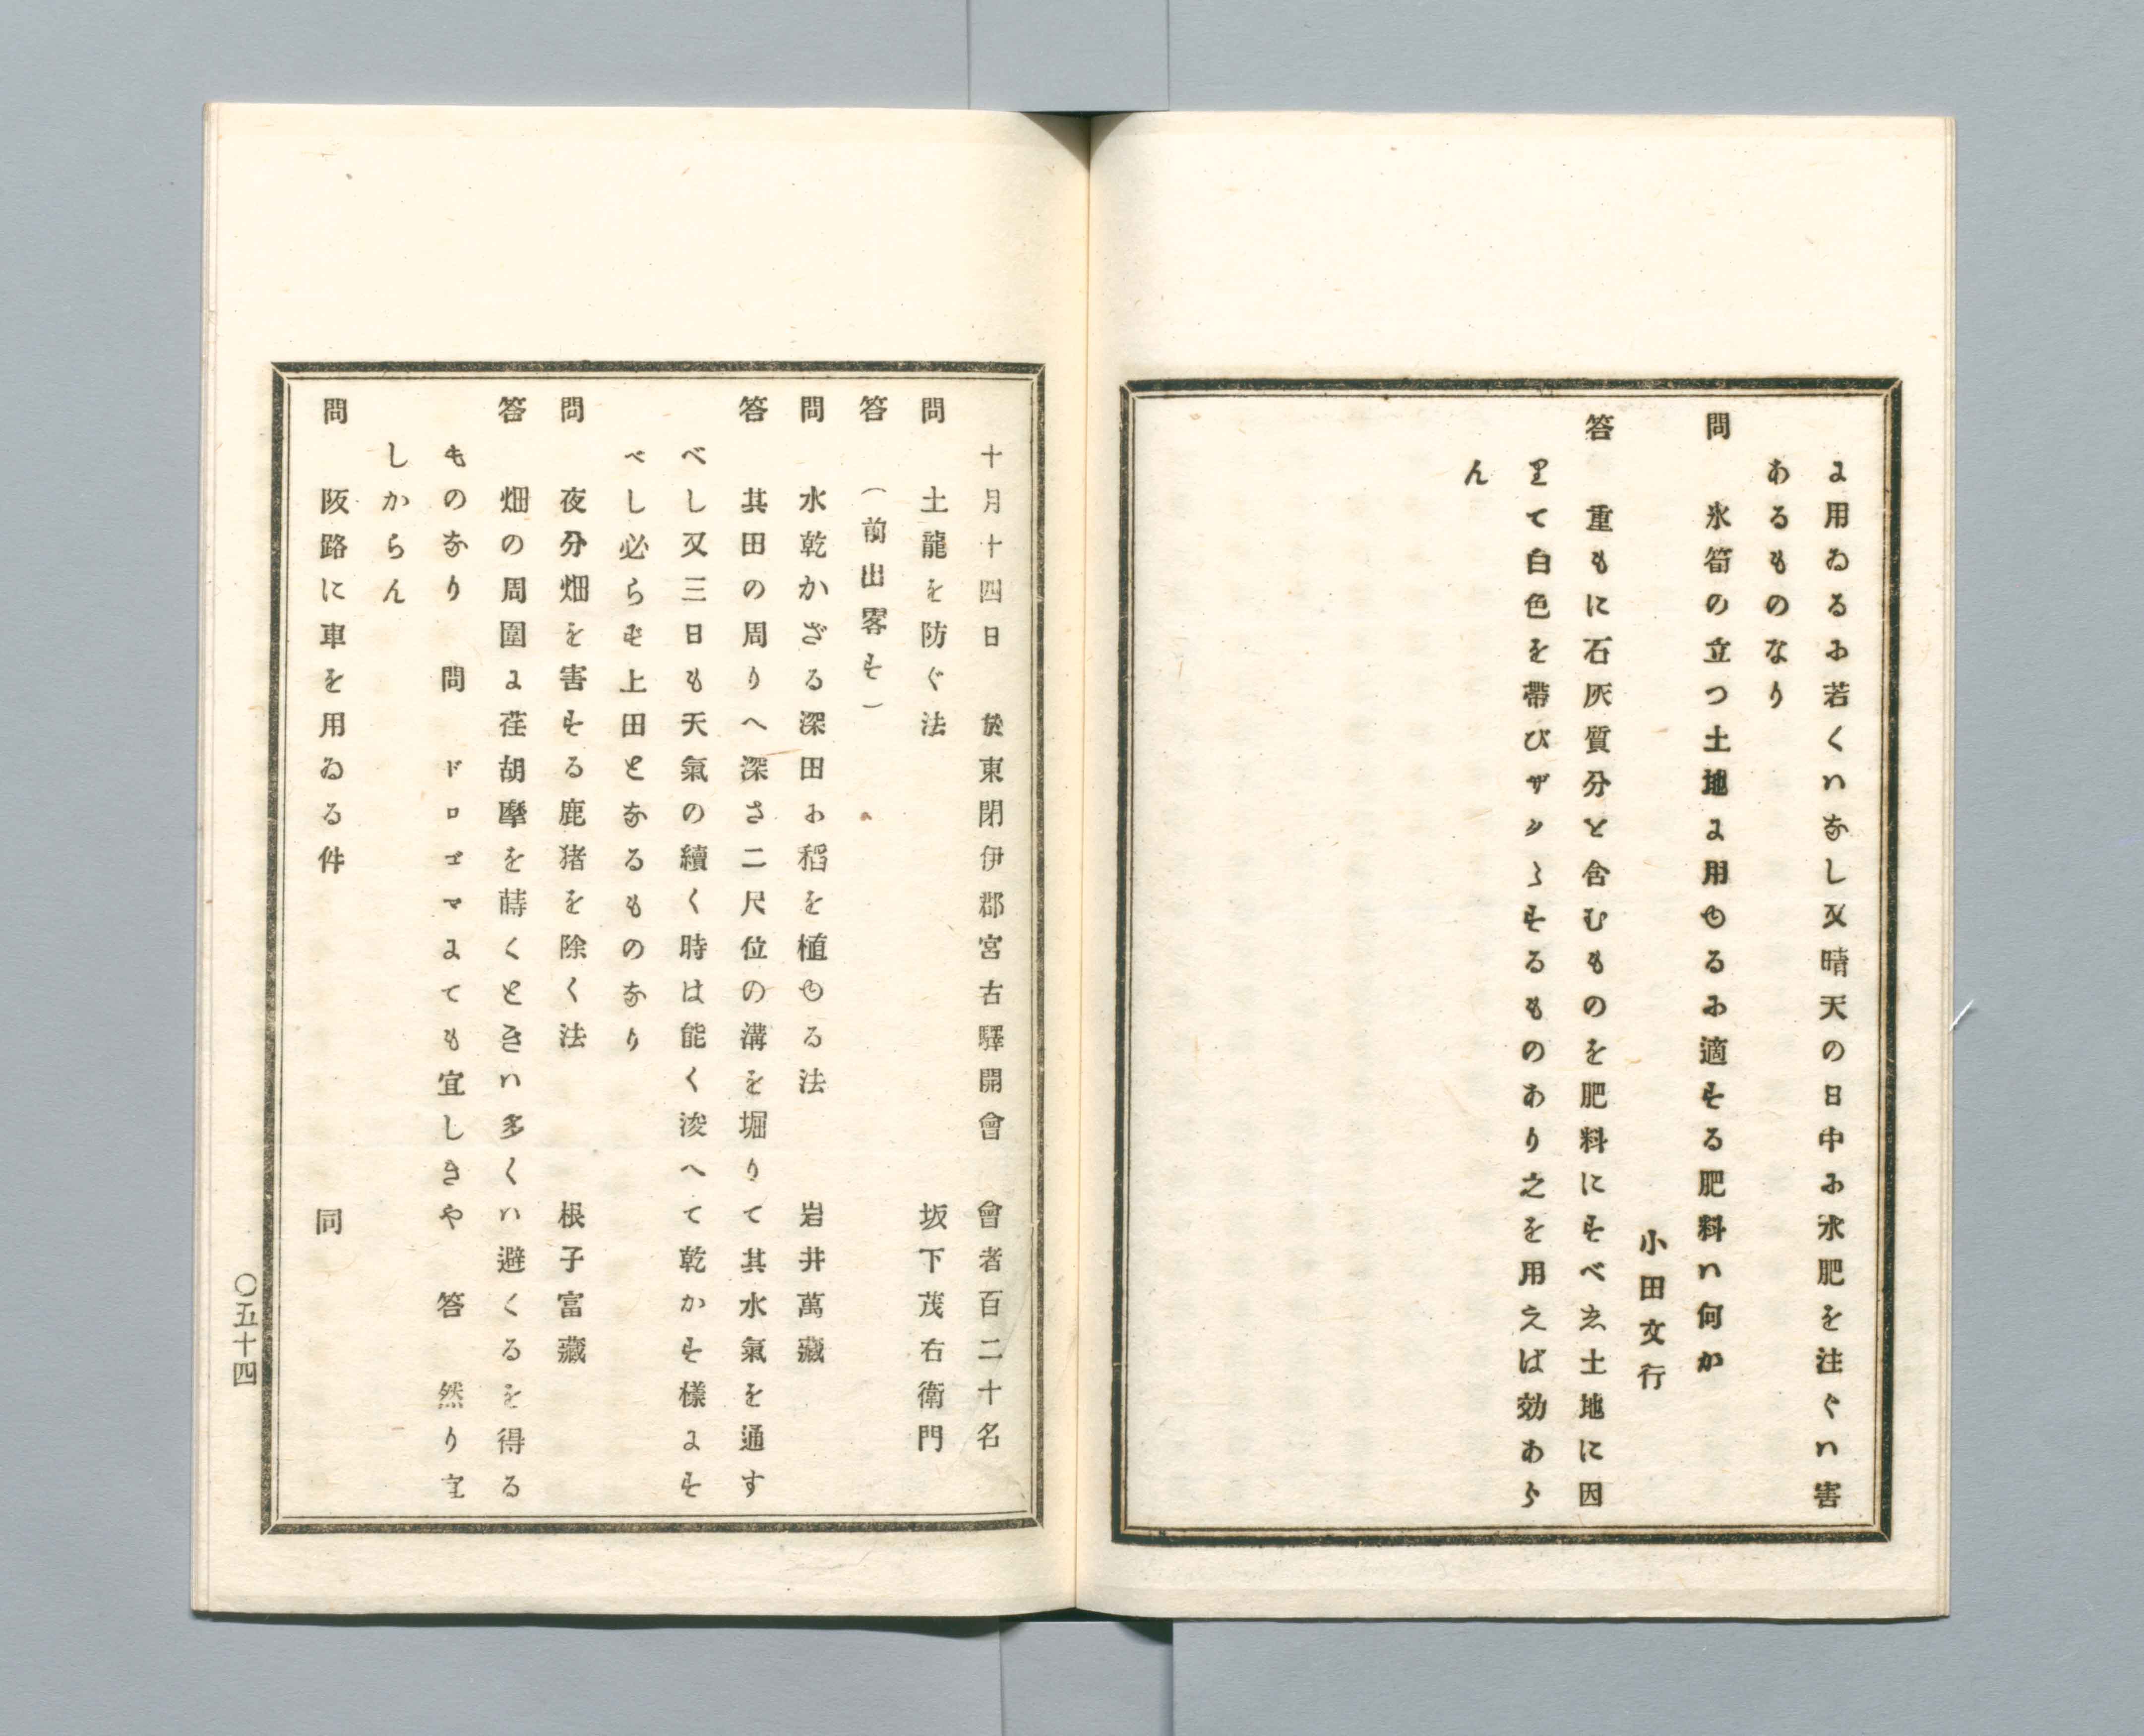 に用ゐるに若くはなし又晴天の日中に水肥を注ぐは害
あるものなり
問　氷筍の立つ土地に用ゆるに適する肥料は何か
小田文行
答　重もに石灰質分と含むものを肥料にすべゑ土地に因
りて白色を帶びザクゝするものあり之を用えば効あら
ん
十月十四日　於東閉伊郡宮古驛開會　會者百二十名
問　土龍を防ぐ法　坂下茂右衛門
答　（前出畧す）
問　水乾かざる深田に稻を植ゆる法　岩井萬藏
答　其田の周りへ深さ二尺位の溝を堀りて其水氣を通す
べし又三日も天氣の續く時は能く浚へて乾かす樣にす
べし必らず上田となるものなり
問　夜分畑を害する鹿猪を除く法　根子富藏
答　畑の周圍に荏胡摩を蒔くときは多くは避くるを得る
ものなり　問　ドロゴマにても宜しきや　答　然り宜
しからん
問　阪路に車を用ゐる件　同
〇五十四